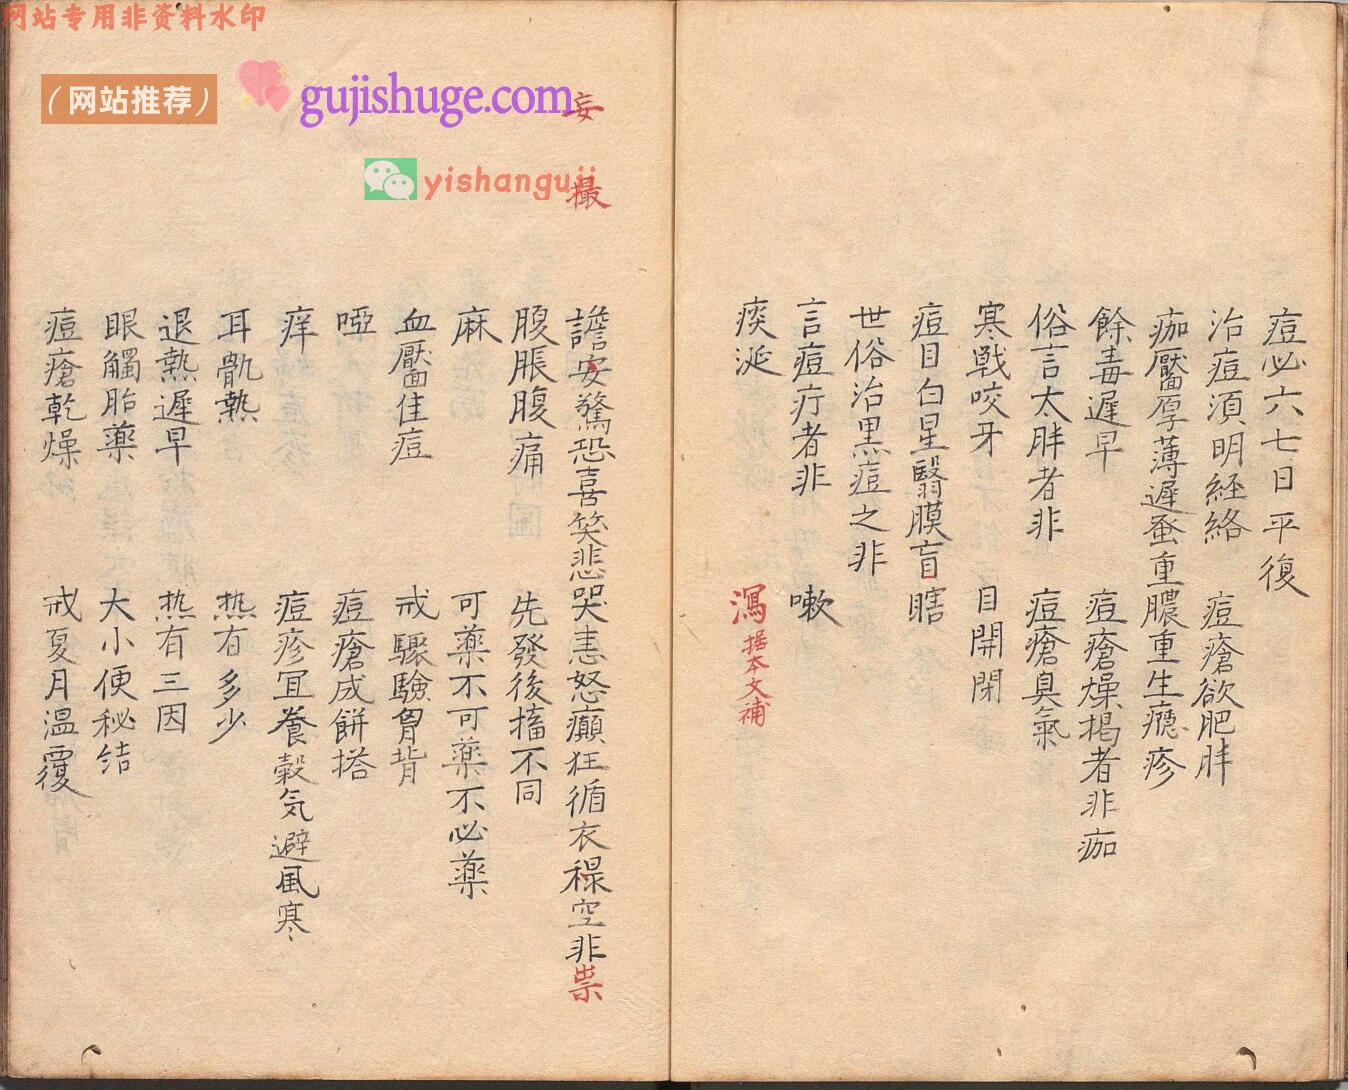 网站专用非资料水印
（网站推荐）
gujishuge.com
yishanguji
痘必六七日平復
治痘須明経絡　痘瘡欲肥胖
痂靨厚薄遲蚤重膿重生癮疹
餘毒遲早　痘瘡燥掲者非痂
俗言太胖者非　痘瘡臭氣
寒戰咬牙　目開閉
痘目白星翳膜盲瞎
世俗治黒痘之非
言痘疔者非　嗽
痰涎　瀉据本文補
妄
撮
譫安驚恐喜笑悲哭恚怒癲狂循衣禢空非祟
腹脹腹痛　先發後搐不同
麻　可薬不可薬不必薬
血靨佳痘　戒驟驗胷背
啞　痘瘡成餅搭
痒　痘疹宜養穀気避風寒
耳骩熱　热有多少
退熱遲早　热有三因
眼觸胎藥　大小便秘结
痘瘡乾燥　戒夏月溫覆